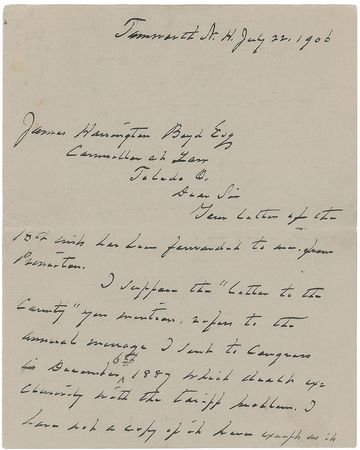 Tamworth N. H. July 22, 1906
James Harrington Boyd Esq
Counsellor at Law
Toledo O.
Dear Sir
Your letter of the
18th inst has been forwarded to me, from
Princeton.
I suppose the "letter to the
Country" you mention, refers to the
annual message I sent to Congress
in December 6th 1887 which dealt ex-
clusively with the tariff problem. I
have not a copy of it here except as it